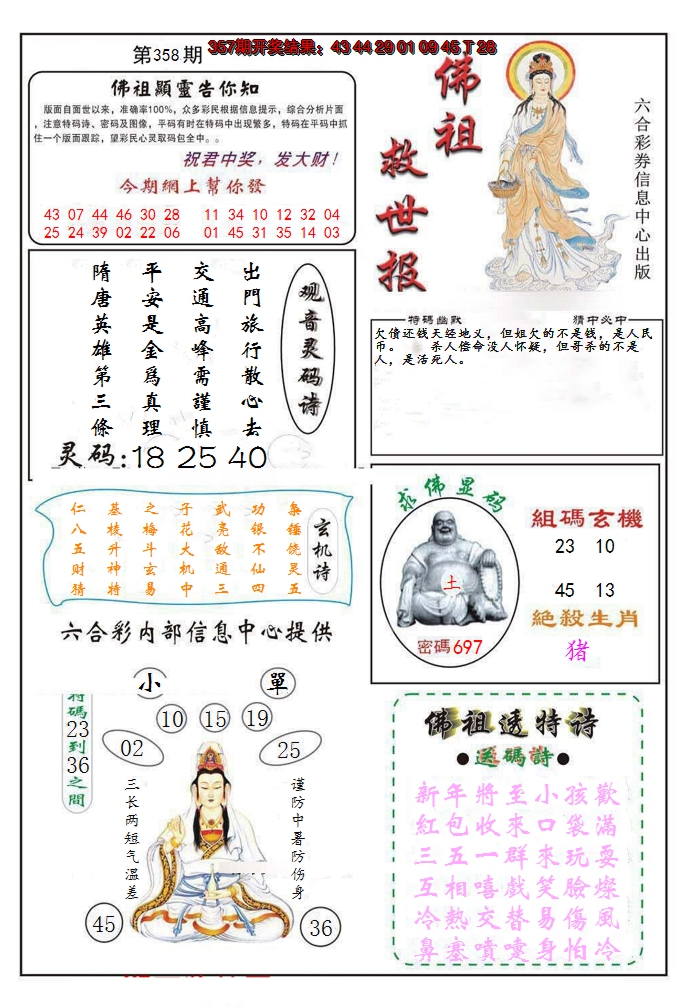 第358期
357期开奖结果：43 44 29 01 09 45 T 28
佛祖顯靈告你知
版面自面世以来，准确率100%，众多彩民根据信息提示，综合分析片面
，注意特码诗、密码及图像，平码有时在特码中出现繁多，特码在平码中抓
住一个版面跟踪，望彩民心灵取码包全中。。
祝君中奖，发大财！
今期網上幫你發
43 07 44 46 30 28 11 34 10 12 32 04
25 24 39 02 22 06 01 45 31 35 14 03
佛祖
救世报
六合彩券信息中心出版
观音灵码诗
出門旅行散心去
交通高峰需謹慎
平安是金爲真理
隋唐英雄第三條
灵码:18 25 40
特碼幽默
猜中必中
欠债还钱天经地义，但姐欠的不是钱，是人民
币。 杀人偿命没人怀疑，但哥杀的不是
人，是活死人。
玄机诗
枭锤饶灵五
功银不仙四
武亮敌通三
子花大机中
之梅斗玄易
基棱升神特
仁八五财猜
六合彩内部信息中心提供
求佛显码
土
密碼697
組碼玄機
23 10
45 13
絕殺生肖
猪
小
單
特碼23到36之間
10 15 19
02
25
三长两短气温差
谨防中暑防伤身
45
36
佛祖透特诗
●送碼詩●
新年將至小孩歡
紅包收來口袋滿
三五一群來玩耍
互相嘻戲笑臉燦
冷熱交替易傷風
鼻塞噴嚏身怕冷